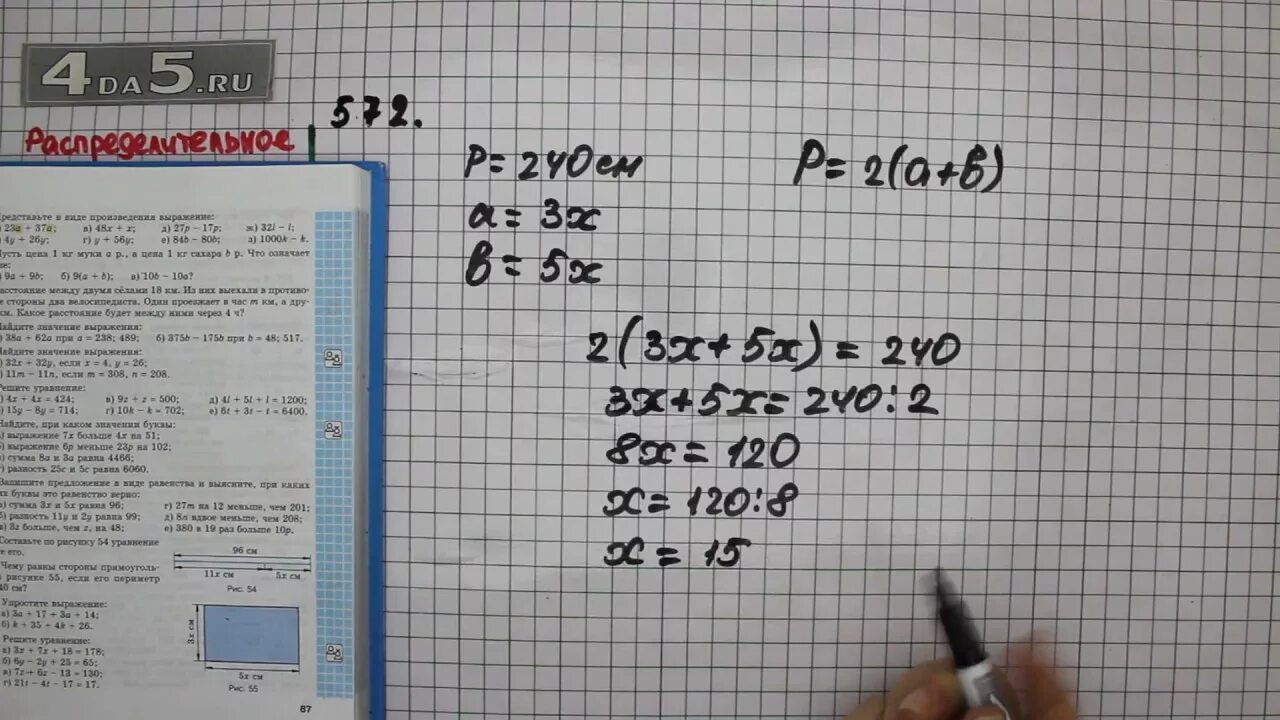 4DA5.RU
572.
Распределительное
P = 240 см
P = 2(a+b)
a = 3x
b = 5x
2(3x+5x) = 240
3x+5x = 240:2
8x = 120
x = 120:8
x = 15
редставьте в виде произведения выражение:
23a + 37a; в) 48x + x; д) 27p − 17p; ж) 32l − l;
4y + 26y; г) y + 56y; е) 84b − 80b; з) 1000k − k.
усть цена 1 кг муки a р., а цена 1 кг сахара b р. Что означает
9a + 9b; б) 9(a + b); в) 10b − 10a?
асстояние между двумя сёлами 18 км. Из них выехали в противо-
е стороны два велосипедиста. Один проезжает в час m км, а дру-
км. Какое расстояние будет между ними через 4 ч?
айдите значение выражения:
38a + 62a при a = 238; 489; б) 375b − 175b при b = 48; 517.
айдите значение выражения:
32x + 32y, если x = 4, y = 26;
11m − 11n, если m = 308, n = 208.
ешите уравнение:
4x + 4x = 424; в) 9z + z = 500; д) 4l + 5l + l = 1200;
15y − 8y = 714; г) 10k − k = 702; е) 6t + 3t − t = 6400.
айдите, при каком значении буквы:
) выражение 7x больше 4x на 51;
) выражение 6p меньше 23p на 102;
) сумма 8a и 3a равна 4466;
) разность 25c и 5c равна 6060.
Запишите предложение в виде равенства и выясните, при каких
их буквы это равенство верно:
а) сумма 3x и 5x равна 96; г) 27m на 12 меньше, чем 201;
б) разность 11y и 2y равна 99; д) 8n вдвое меньше, чем 208;
в) 3z больше, чем z, на 48; е) 380 в 19 раз больше 10p.
Составьте по рисунку 54 уравнение
е его.
96 см
11x см 5x см
Рис. 54
Чему равны стороны прямоуголь-
рисунке 55, если его периметр
40 см?
Упростите выражение:
а) 3a + 17 + 3a + 14;
б) k + 35 + 4k + 26.
Решите уравнение:
а) 3x + 7x + 18 = 178;
б) 6y − 2y + 25 = 65;
в) 7z + 6z − 13 = 130;
г) 21t − 4t − 17 = 17.
3x см
5x см
Рис. 55
87